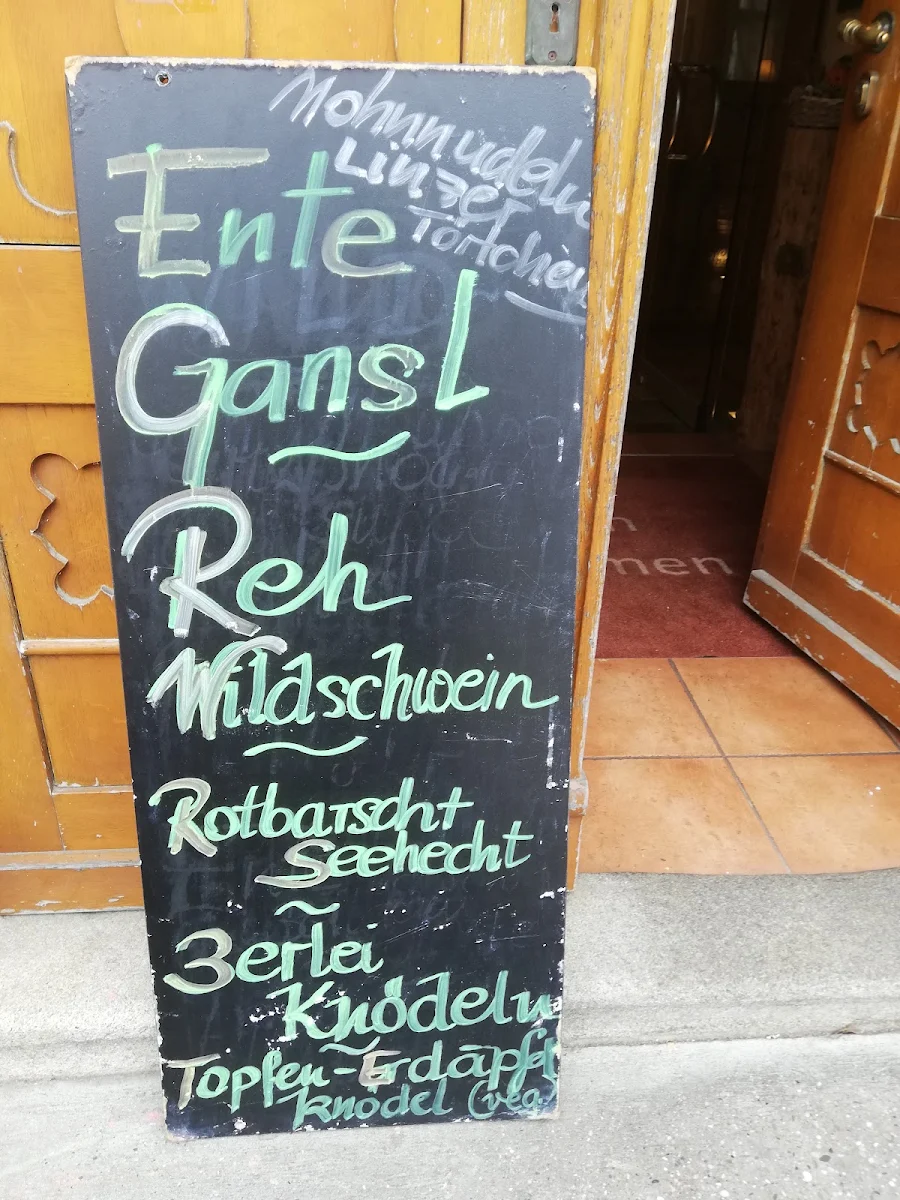 Mohnnudeln
Linzer
Törtchen
Ente
Gansl
Reh
Wildschwein
Rotbarscht
Seehecht
3erlei
Knödeln
Topfen-Erdäpfel
knödel (veg)
men